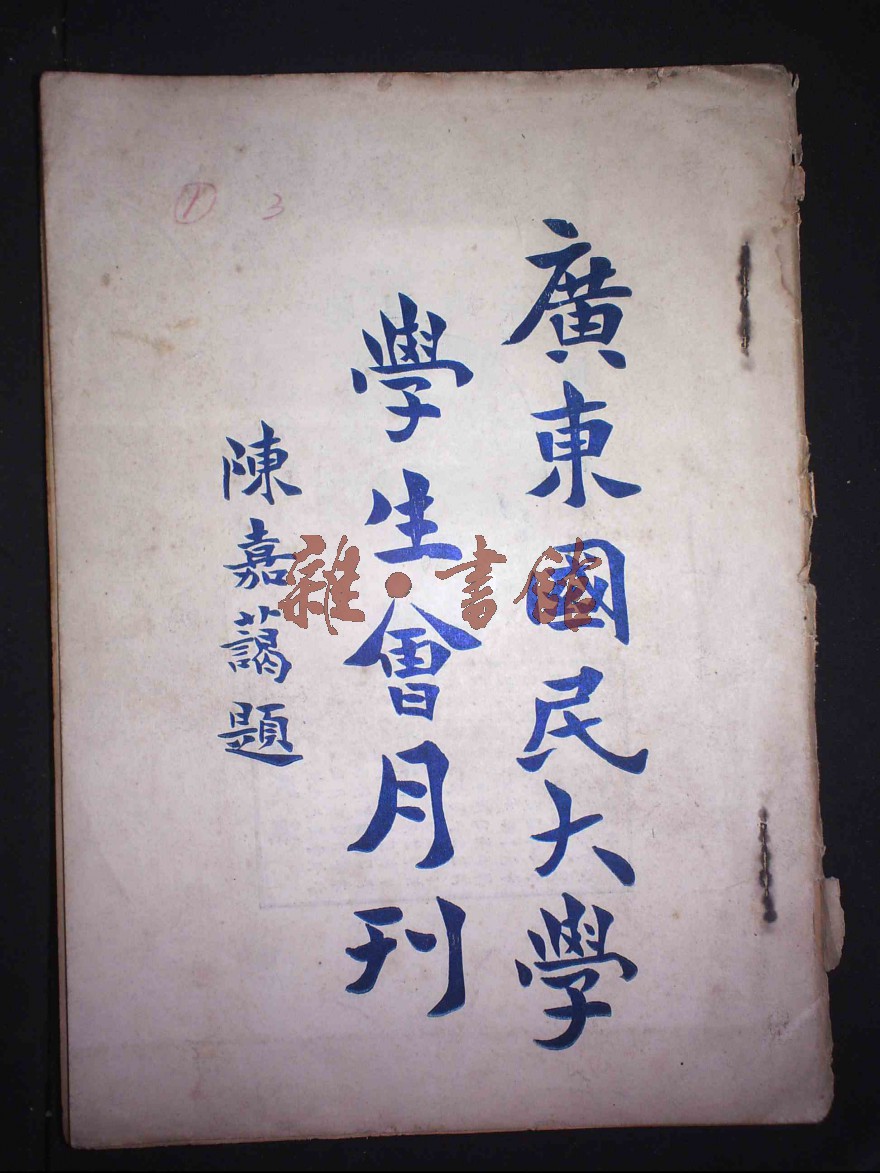 廣東國民大學
學生會月刊
陳嘉藹題
雜·書館
① 3